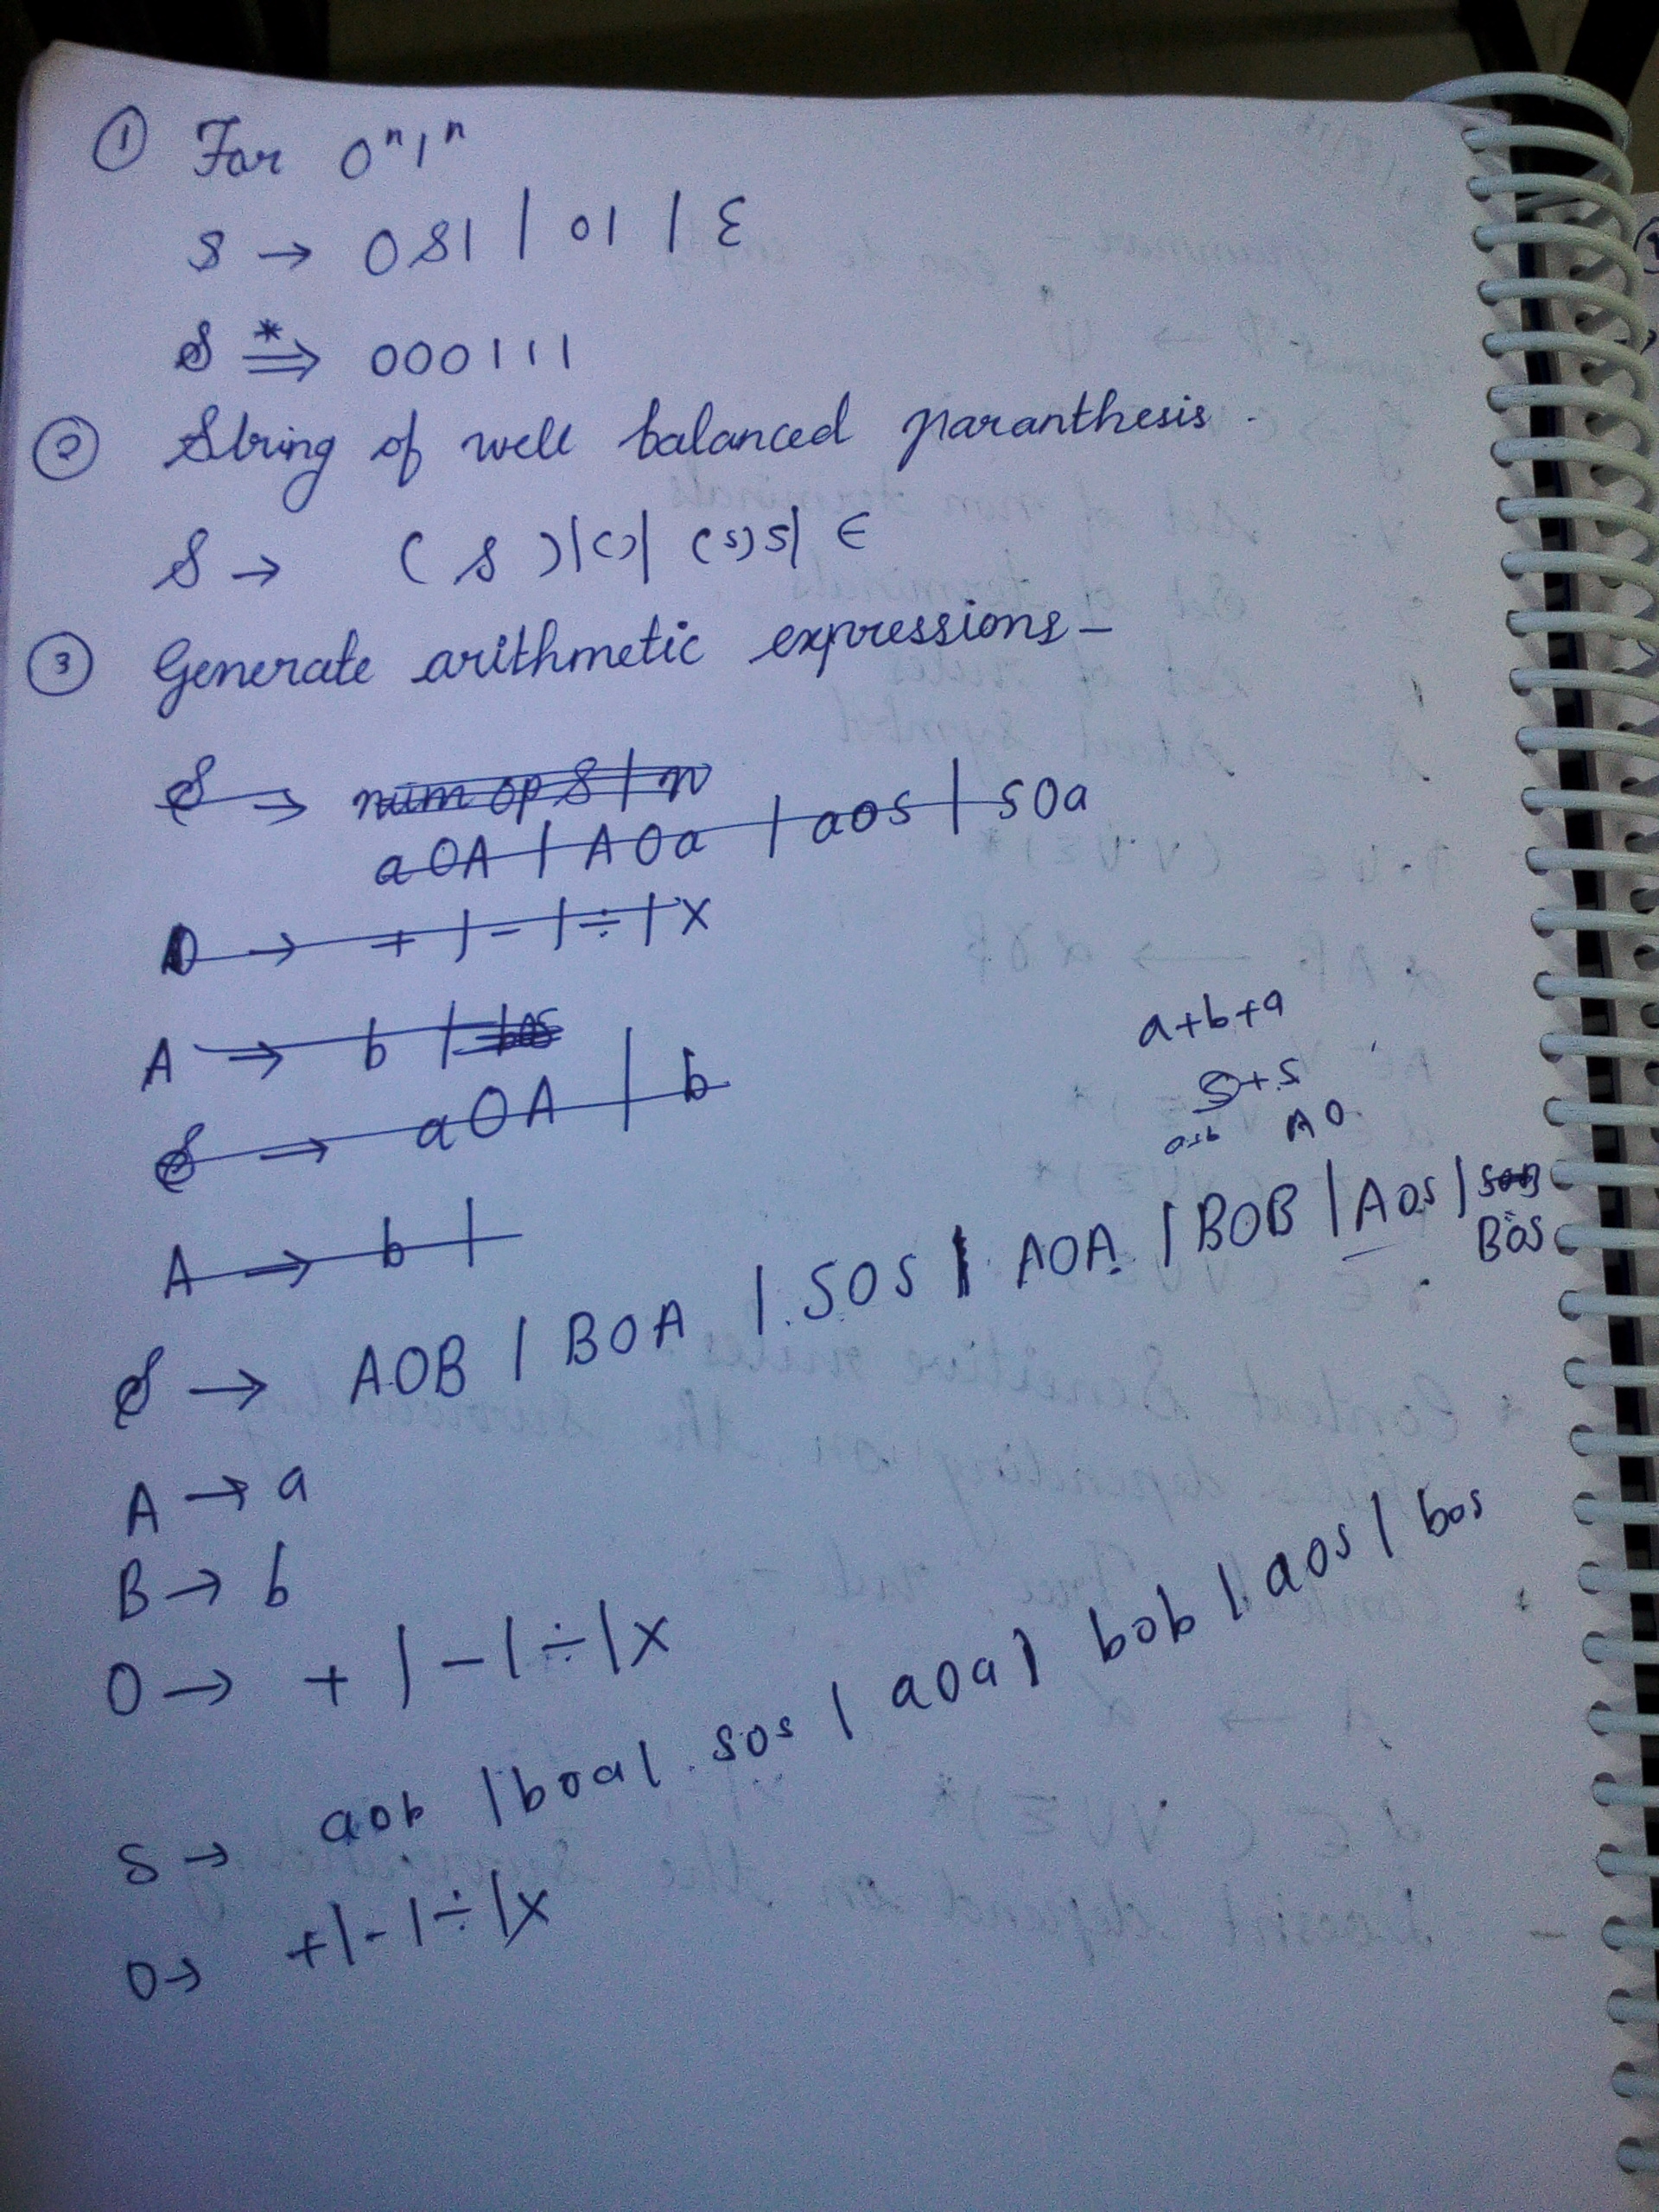 ① For 0ⁿ1ⁿ
S → 0S1 | 01 | ε
S ⇒* 000111
② String of well balanced paranthesis.
S → (S)|()| (S)S| ∈
③ Generate arithmetic expressions-
S → num op S | n
aOA | AOa | aOS | SOa
O → + | - | ÷ | x
A → b | bos
S → aOA | b
A → b |
a+b+a
S+S
AO
S → AOB | BOA | SOS | AOA | BOB | AOS |
BOS
A → a
B → b
O → + | - | ÷ | x
S → aOb | bOa | SOS | aOa | bOb | aOS | bOS
O → + | - | ÷ | x